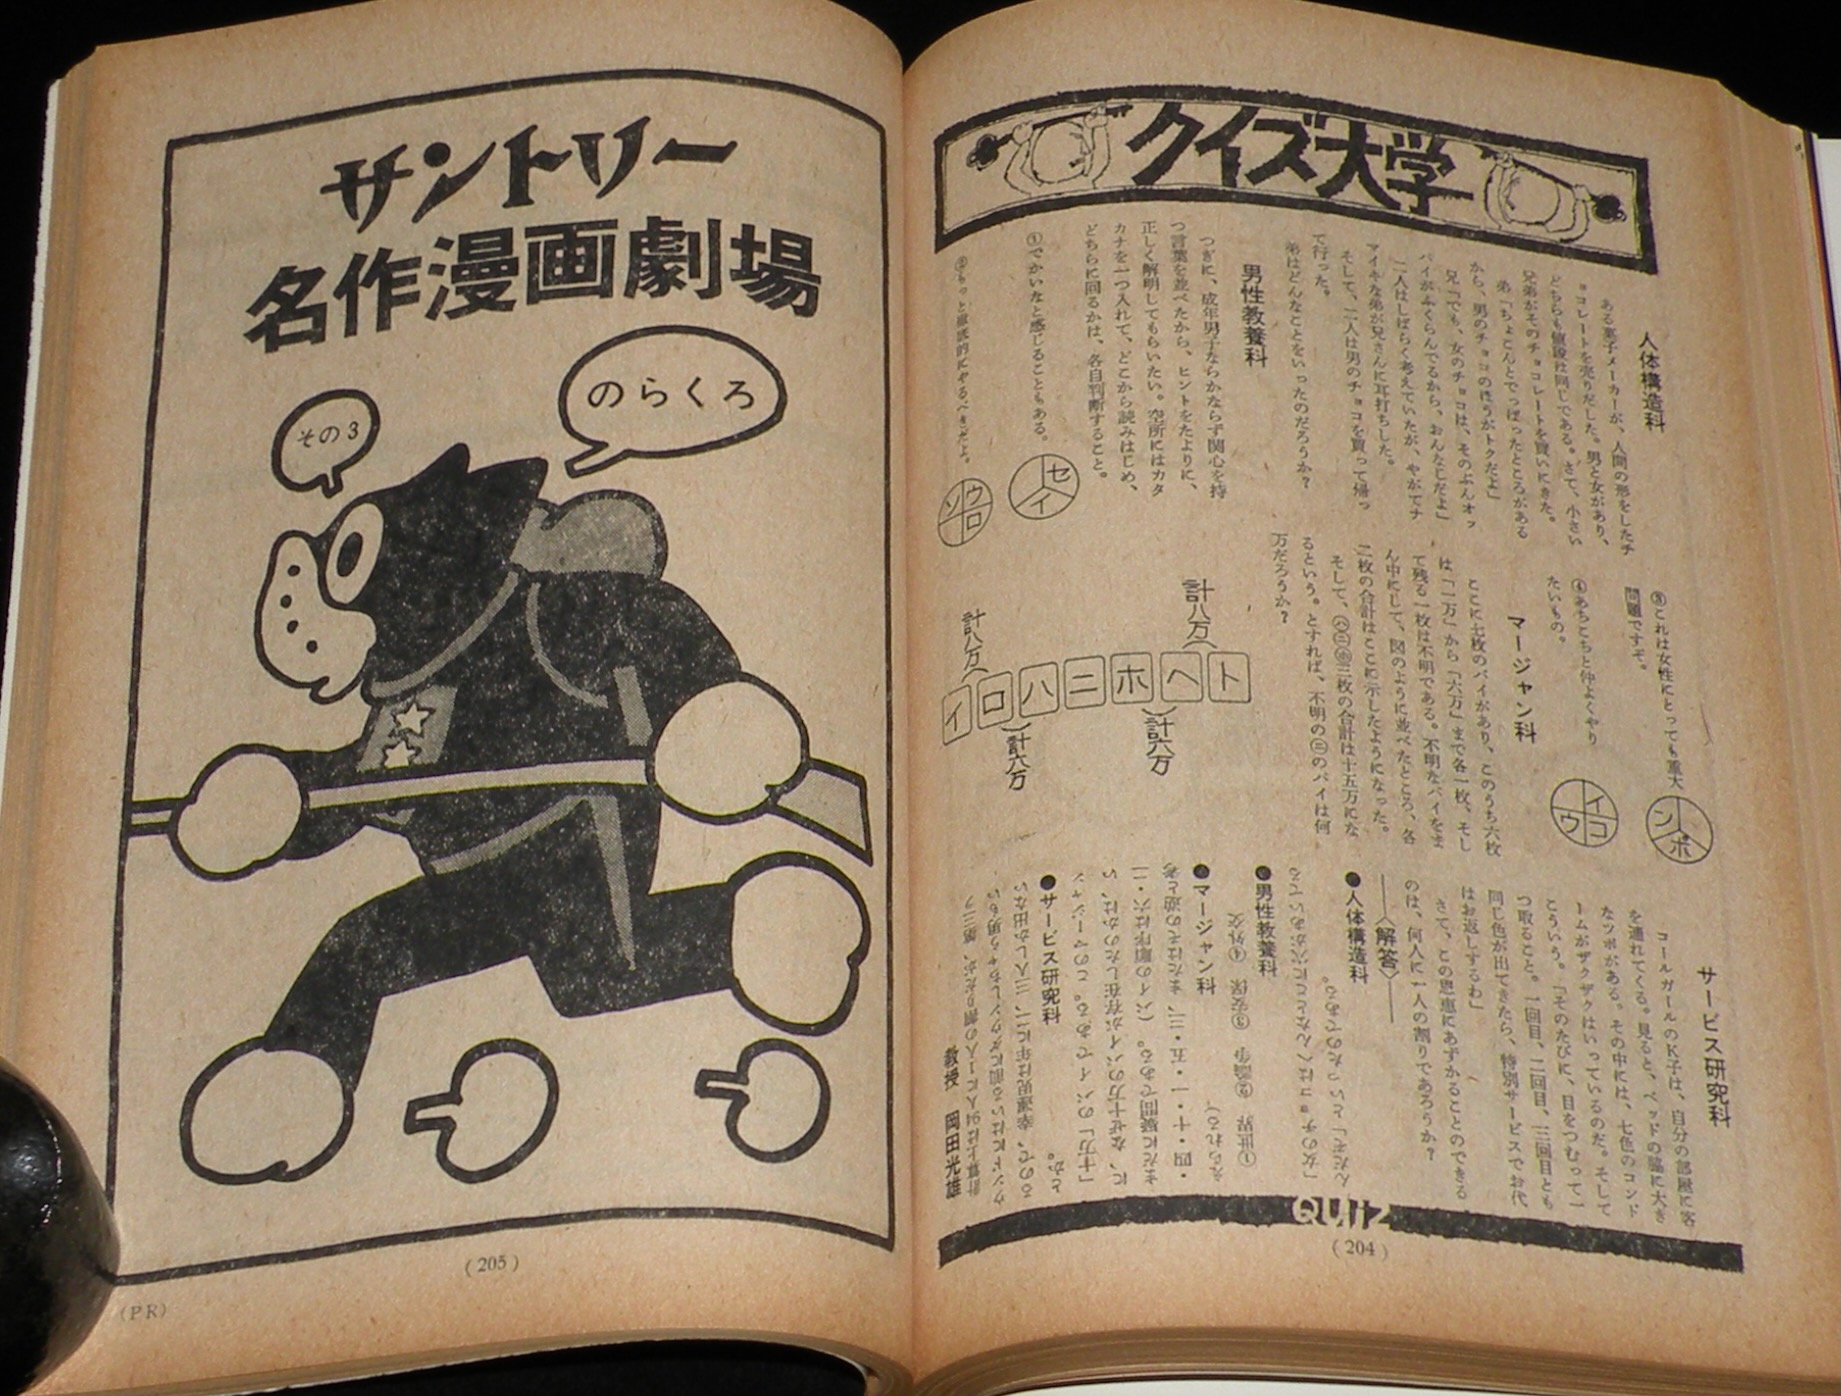 クイズ大学
人体構造科
ある菓子メーカーが、人間の形をしたチ
ョコレートを売りだした。男と女があり、
どちらも値段は同じである。さて、小さい
兄弟がそのチョコレートを買いにきた。
弟「ちょこんとでっぱったところがある
から、男のチョコのほうがトクだよ」
兄「でも、女のチョコは、そのぶんオッ
パイがふくらんでるから、おんなじだよ」
二人はしばらく考えていたが、やがてチ
マイキな弟が兄さんに耳打ちした。
そして、二人は男のチョコを買って帰っ
て行った。
弟はどんなことをいったのだろうか?
男性教養科
つぎに、成年男子ならかならず関心を持
つ言葉を並べたから、ヒントをたよりに、
正しく解明してもらいたい。空所にはカタ
カナを一つ入れて、どこから読みはじめ、
どちらに回るかは、各自判断すること。
①でかいなと感じることもある。
セ
イ
②もっと徹底的にやるべきだよ。
ウ
ソ
ロ
③これは女性にとっても重大
問題ですぞ。
ン
ポ
④あちこちと仲よくやり
たいもの。
イ
コ
ウ
マージャン科
ここに七枚のパイがあり、このうち六枚
は「一万」から「六万」まで各一枚、そし
て残る一枚は不明である。不明なパイをま
ん中にして、図のように並べたところ、各
二枚の合計はここに示したようになった。
そして、㋩㋥㋭三枚の合計は十五万にな
るという。とすれば、不明の㋥のパイは何
万だろうか?
計八万
計八万
イ ロ ハ ニ ホ ヘ ト
計六万
計六万
サービス研究科
コールガールのK子は、自分の部屋に客
を連れてくる。見ると、ベッドの脇に大き
なツボがある。その中には、七色のコンド
ームがザクザクはいっているのだ。そして
こういう。「そのたびに、目をつむって一
つ取ること。一回目、二回目、三回目とも
同じ色が出てきたら、特別サービスでお代
はお返しするわ」
さて、この恩恵にあずかることのできる
のは、何人に一人の割りであろうか?
〈解答〉
●人体構造科
「女のチョコはへんなとこに穴があいてる
んだぞ」といったのである。
●男性教養科
①世界 ②論争 ③安保 ④外交
●マージャン科
「十万」のパイである。このマージャン
に、なぜ十万のパイが存在したのかは、い
まだに疑問である。(パイの順序は六・二
・四・十・一・五・三、またはその逆も考
えられる)
●サービス研究科
計算上は49人に1人の割りだが、第三ラ
ウンドにはいる前にダウンしちゃう男もい
るので、幸運児は年に一、二人しか出ない
とか。
教授 岡田光雄
QUiZ
(204)
サントリー
名作漫画劇場
のらくろ
その3
(205)
(PR)